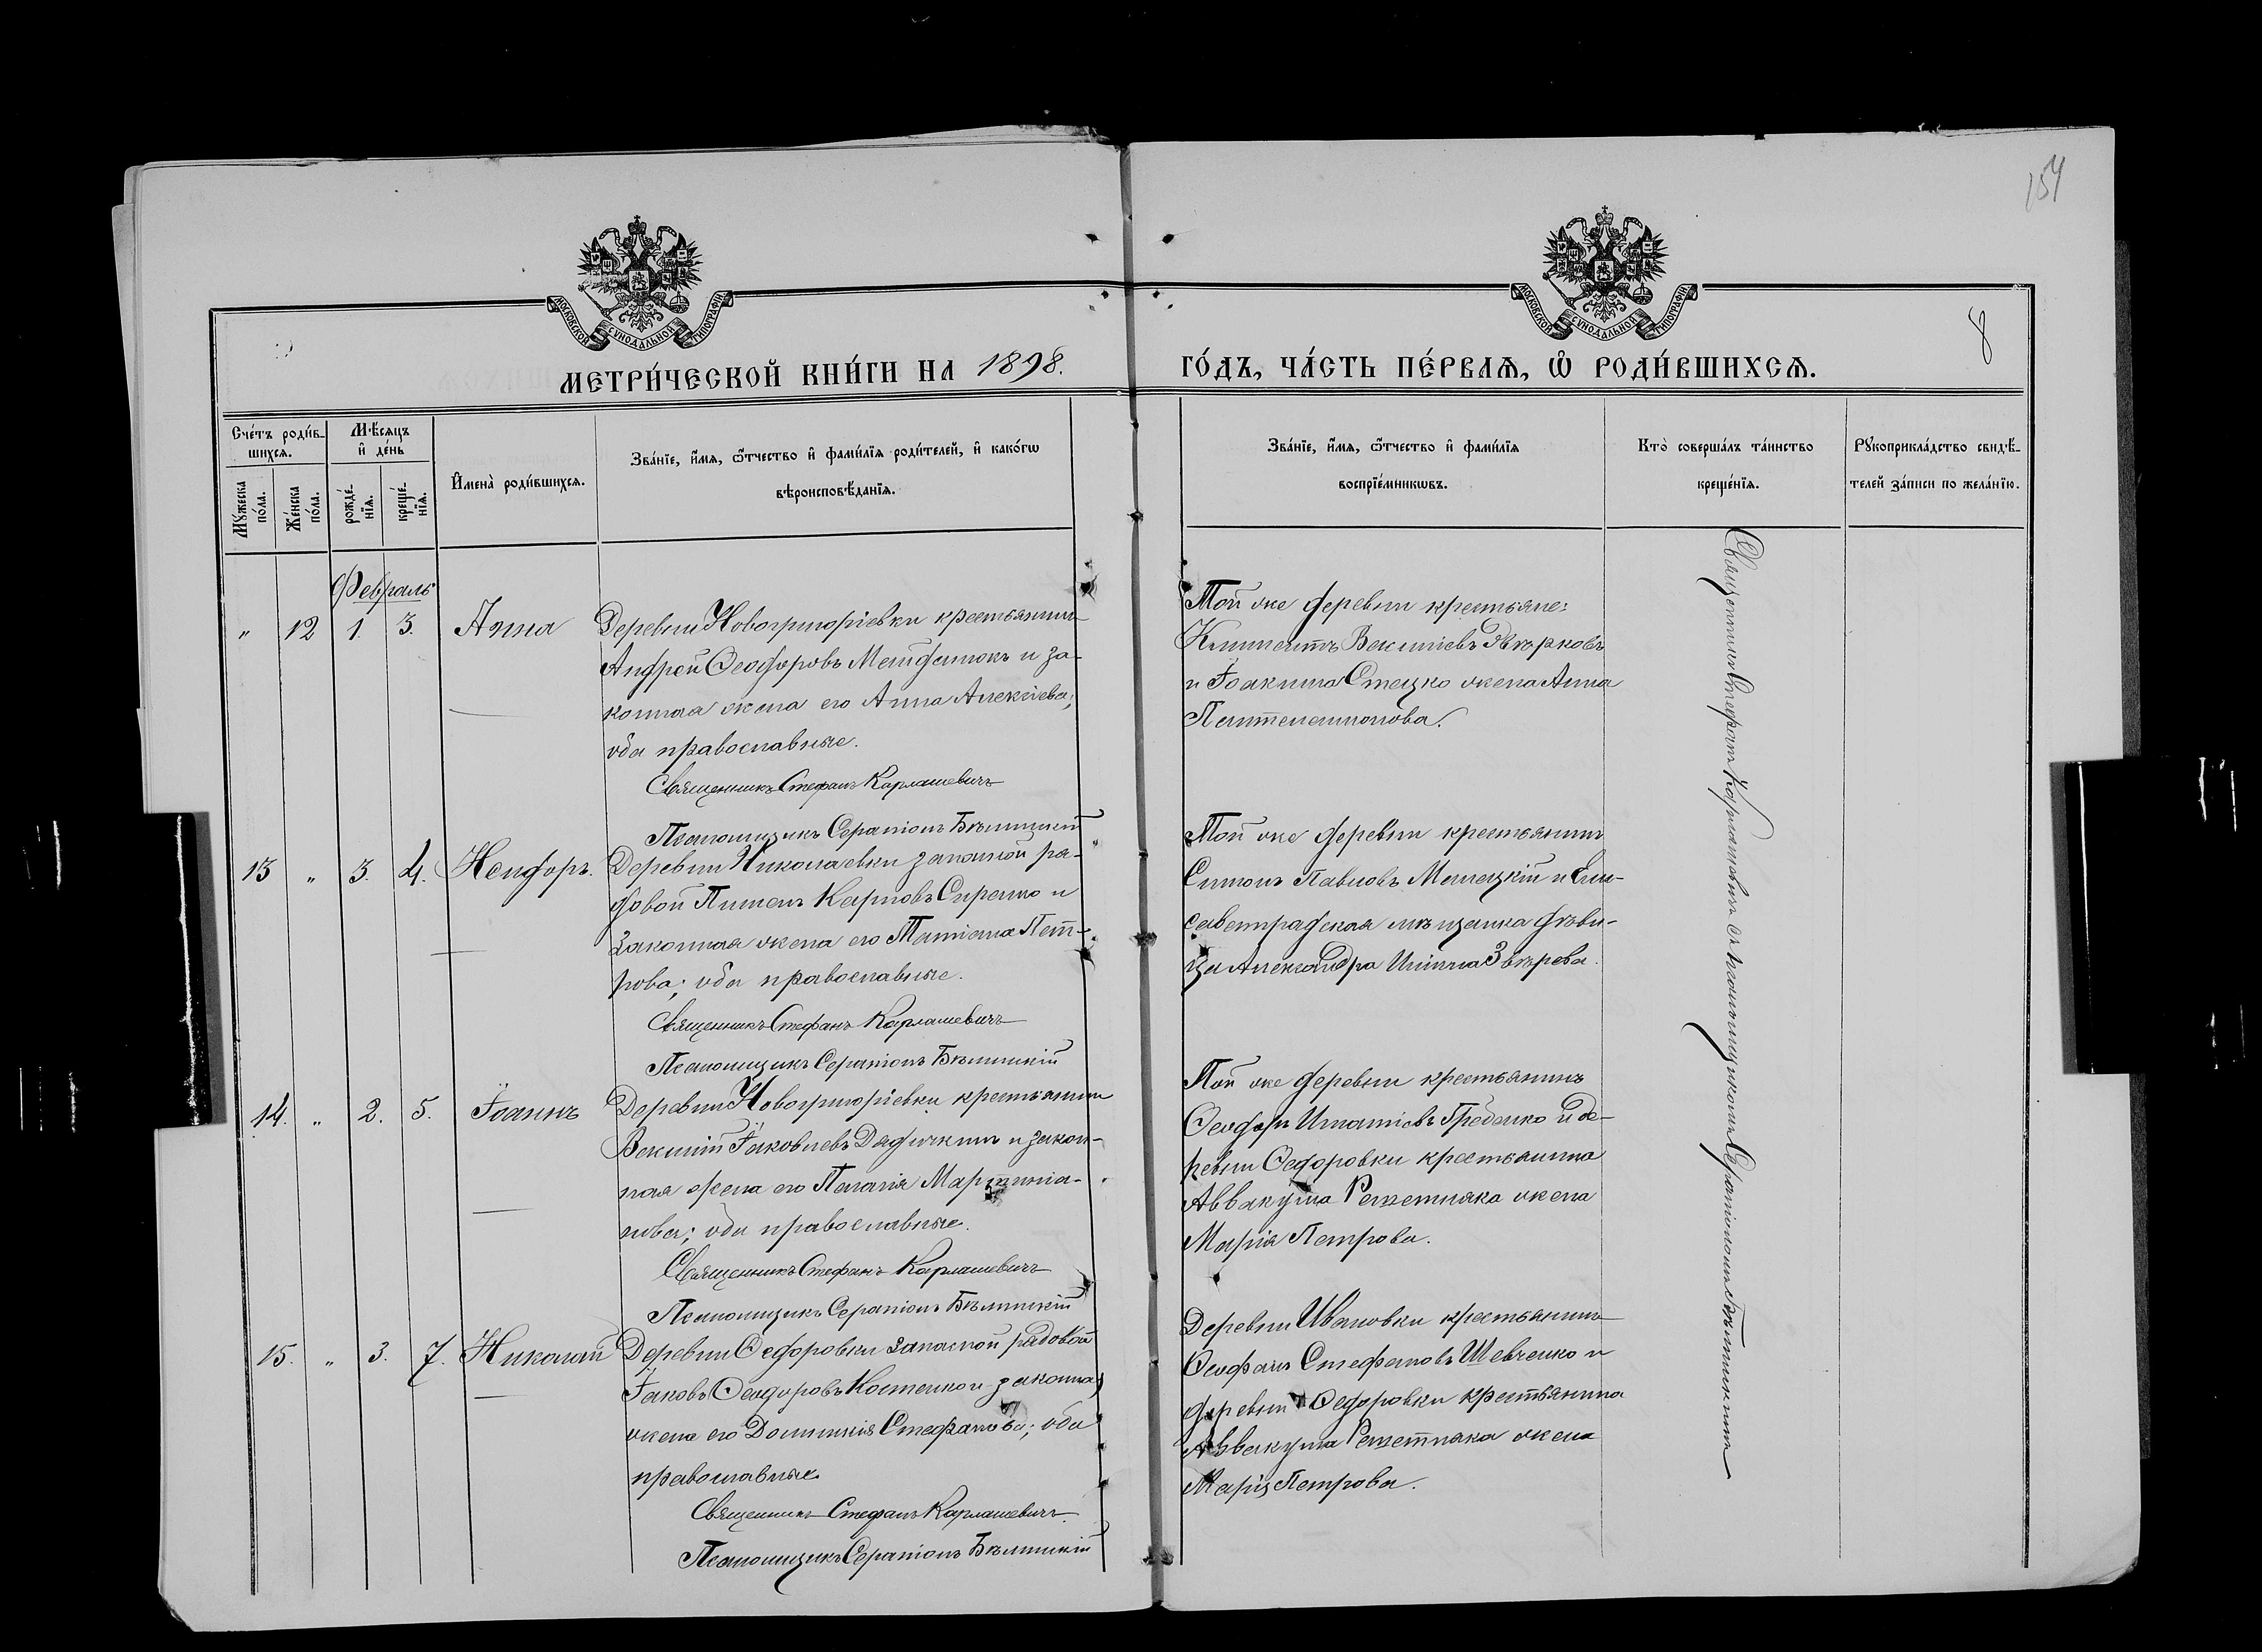 154
8
МОСКОВСКОЙ СѴНОДАЛЬНОЙ ТИПОГРАФІИ
МОСКОВСКОЙ СѴНОДАЛЬНОЙ ТИПОГРАФІИ
МЕТРИ́ЧЕСКОЙ КНИ́ГИ НА 1898.
ГО́ДЪ, ЧА́СТЬ ПЕ́РВАѦ, Ѡ҆ РОДИ́ВШИХСѦ.
Сче́тъ роди́в-
шихсѧ.
Мѣ́сѧцъ
и҆ де́нь
Мꙋ́жеска
по́ла.
Же́нска
по́ла.
рожде́-
нїѧ.
креще́-
нїѧ.
И҆мена̀ роди́вшихсѧ.
Зва́нїе, и҆́мѧ, ѻ҆́тчество и҆ фами́лїѧ роди́телей, и҆ како́гѡ
вѣроисповѣ́данїѧ.
Зва́нїе, и҆́мѧ, ѻ҆́тчество и҆ фами́лїѧ
воспрїе́мникѡвъ.
Кто̀ соверша́лъ та́инство
креще́нїѧ.
Рꙋкоприкла́дство свидѣ́-
телей за́писи по жела́нїю.
Февраль
" 12 1. 3. Анна
Деревни Новогригоріевки крестьянинъ
Андрей Ѳеодоровъ и за-
конная жена его Анна Алексіева;
оба православные.
Священникъ Стефанъ Карлашевичъ
Псаломщикъ Серапіонъ Бѣлинскій
Той же деревни крестьяне:
Климентъ Василіевъ
и Іоакима Стецко жена Анна
Пантелеимонова.
13 " 3. 4. Никифоръ.
Деревни Николаевки запасной ря-
довой Пименъ Карповъ Сиренко и
законная жена его Татіана Пет-
рова; оба православные.
Священникъ Стефанъ Карлашевичъ
Псаломщикъ Серапіонъ Бѣлинскій
Той же деревни крестьянинъ
Симонъ Павловъ и Ели-
саветградская мѣщанка дѣви-
ца Александра Ильина Звѣрева.
14. " 2. 5. Іоаннъ
Деревни Новогригоріевки крестьянинъ
Василій Іаковлевъ и закон-
ная жена его Пелагія Мартиніа-
нова; оба православные.
Священникъ Стефанъ Карлашевичъ
Псаломщикъ Серапіонъ Бѣлинскій
Той же деревни крестьянинъ
Ѳеодоръ Игнатіевъ Гребенко и де-
ревни Ѳедоровки крестьянина
Аввакума Решетняка жена
Марія Петрова.
15. " 3. 7. Николай
Деревни Ѳедоровки запасной рядовой
Іаковъ Ѳеодоровъ Костенко и законная
жена его Домникія Стефанова; оба
православные.
Священникъ Стефанъ Карлашевичъ
Псаломщикъ Серапіонъ Бѣлинскій
Деревни Ивановки крестьянинъ
Ѳеофанъ Стефановъ Шевченко и
деревни Ѳедоровки крестьянина
Аввакума Решетняка жена
Марія Петрова.
Священникъ Стефанъ Карлашевичъ съ псаломщикомъ Серапіономъ Бѣлинскимъ